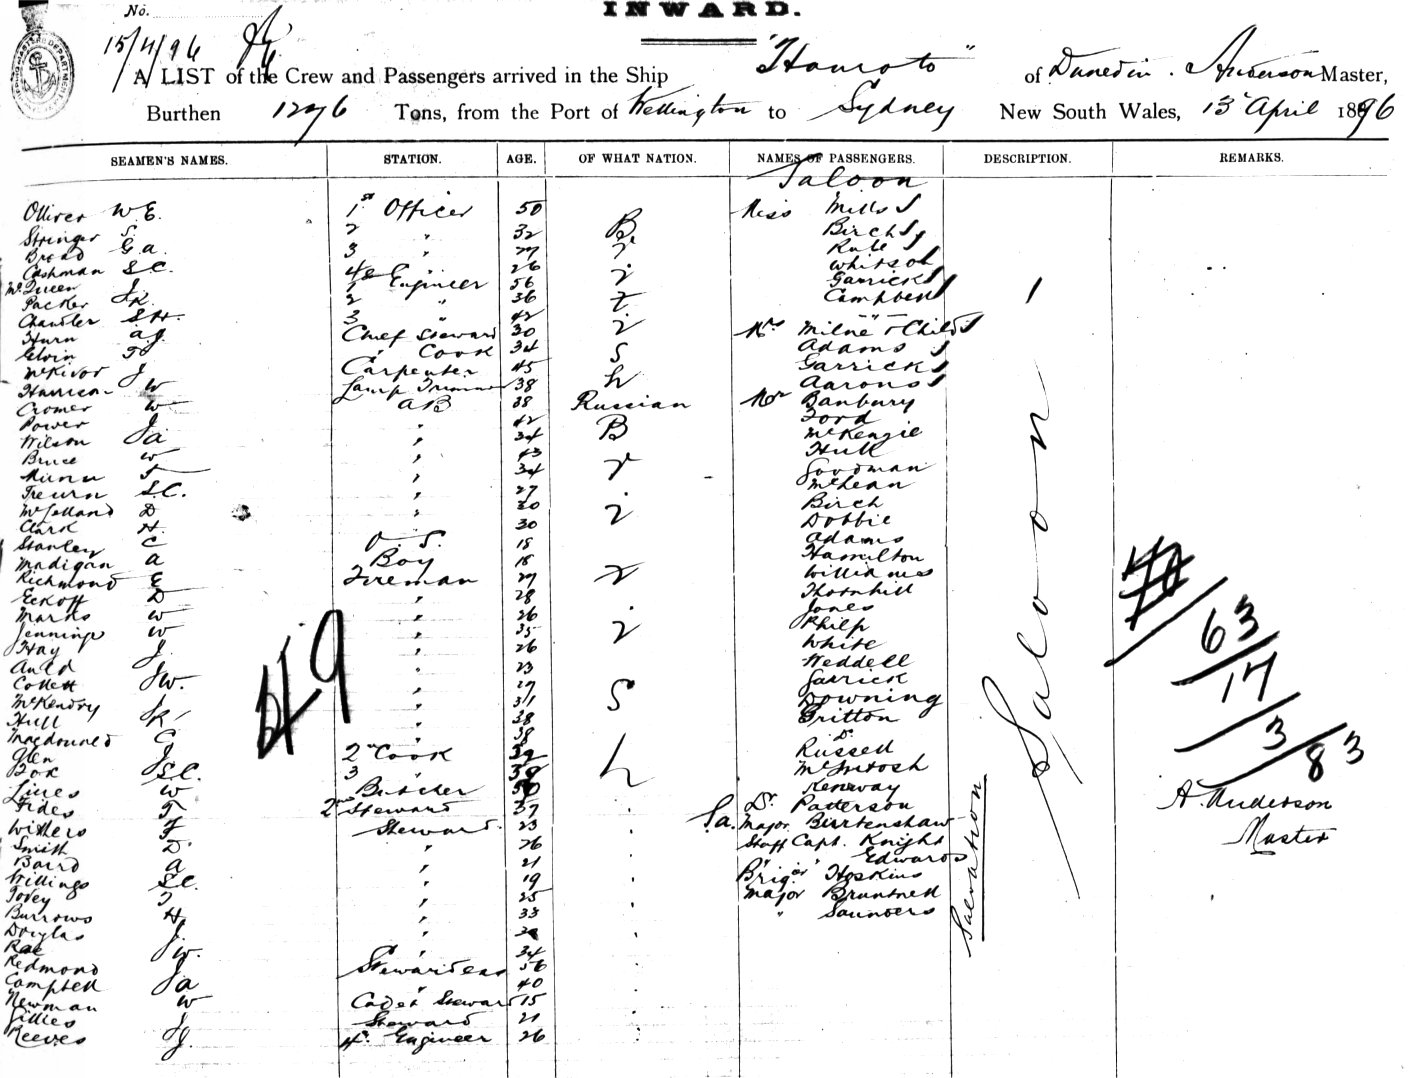 INWARD.
No.
15/4/96
A LIST of the Crew and Passengers arrived in the Ship "Hauroto" of Dunedin. Anderson Master,
Burthen 1276 Tons, from the Port of Wellington to Sydney New South Wales, 13 April 1896
SEAMEN'S NAMES. STATION. AGE. OF WHAT NATION. NAMES OF PASSENGERS. DESCRIPTION. REMARKS.
Saloon
Olliver W E. 1st Officer 50 Miss Mills
Stringer S. 2 " 32 B Birch
Broad G a. 3 " 27 r Rule
Cashman S C. 4th Engineer 26 Whitson
McQueen J. 1 " 56 i Garrick
Packer J K. 2 " 36 t Campbell
Chandler S H. 3 " 42
Hurn a J. Chief Steward 30 i Mrs Milne & Child
Elvin T " Cook 34 Adams
McKivor J Carpenter 45 s Garrick
Harrison W Lamp Trimmer 38 h Aarons
Cromer W AB 38 Russian Mr Banbury
Power J " 42 Ford
Wilson J a " 34 B McKenzie
Bruce W " 43 Hull
Munn T " 34 r Goodman
Treurn S C. " 27 McLean
McLelland D " 30 i Birch
Clark H. " 30 Dobbie
Stanley C O. S. 18 Adams
Madigan a Boy 18 Hamilton
Richmond E Fireman 27 r Williams
Eckoff D " 28 Thornhill
Marks W " 26 Jones
Jennings W " 35 i Philp
Hay J. " 26 White
Auld " 23 Weddell
Collett J W. " 27 Garrick
McKendry J " 31 s Downing
Hull R " 38 Gritton
Macdonald C " 38 Dr
Glen J 2nd Cook 32 Russell
Box S C. 3 " h McIntosh
Lines W Butcher Keneway
Fides T 2nd Steward 37 Dr. Patterson
Withers F Steward 23 Sa. Major Birtenshaw
Smith D " 26 Staff Capt. Knight
Baird a " 21 " " Edwards
Willings S C. " 19 Brigr Hoskins
Tovey T " 25 Major Bruntnell
Burrows H " 33 " Saunders
Douglas J. "
Rae W. " 34
Redmond J Stewardess 56
Campbell J a " 40
Newman W Cadet Steward 15
Gillies J Steward 21
Reeves J. 4th Engineer 26
49
Saloon
Salvation
63
17
3
83
A. Anderson
Master